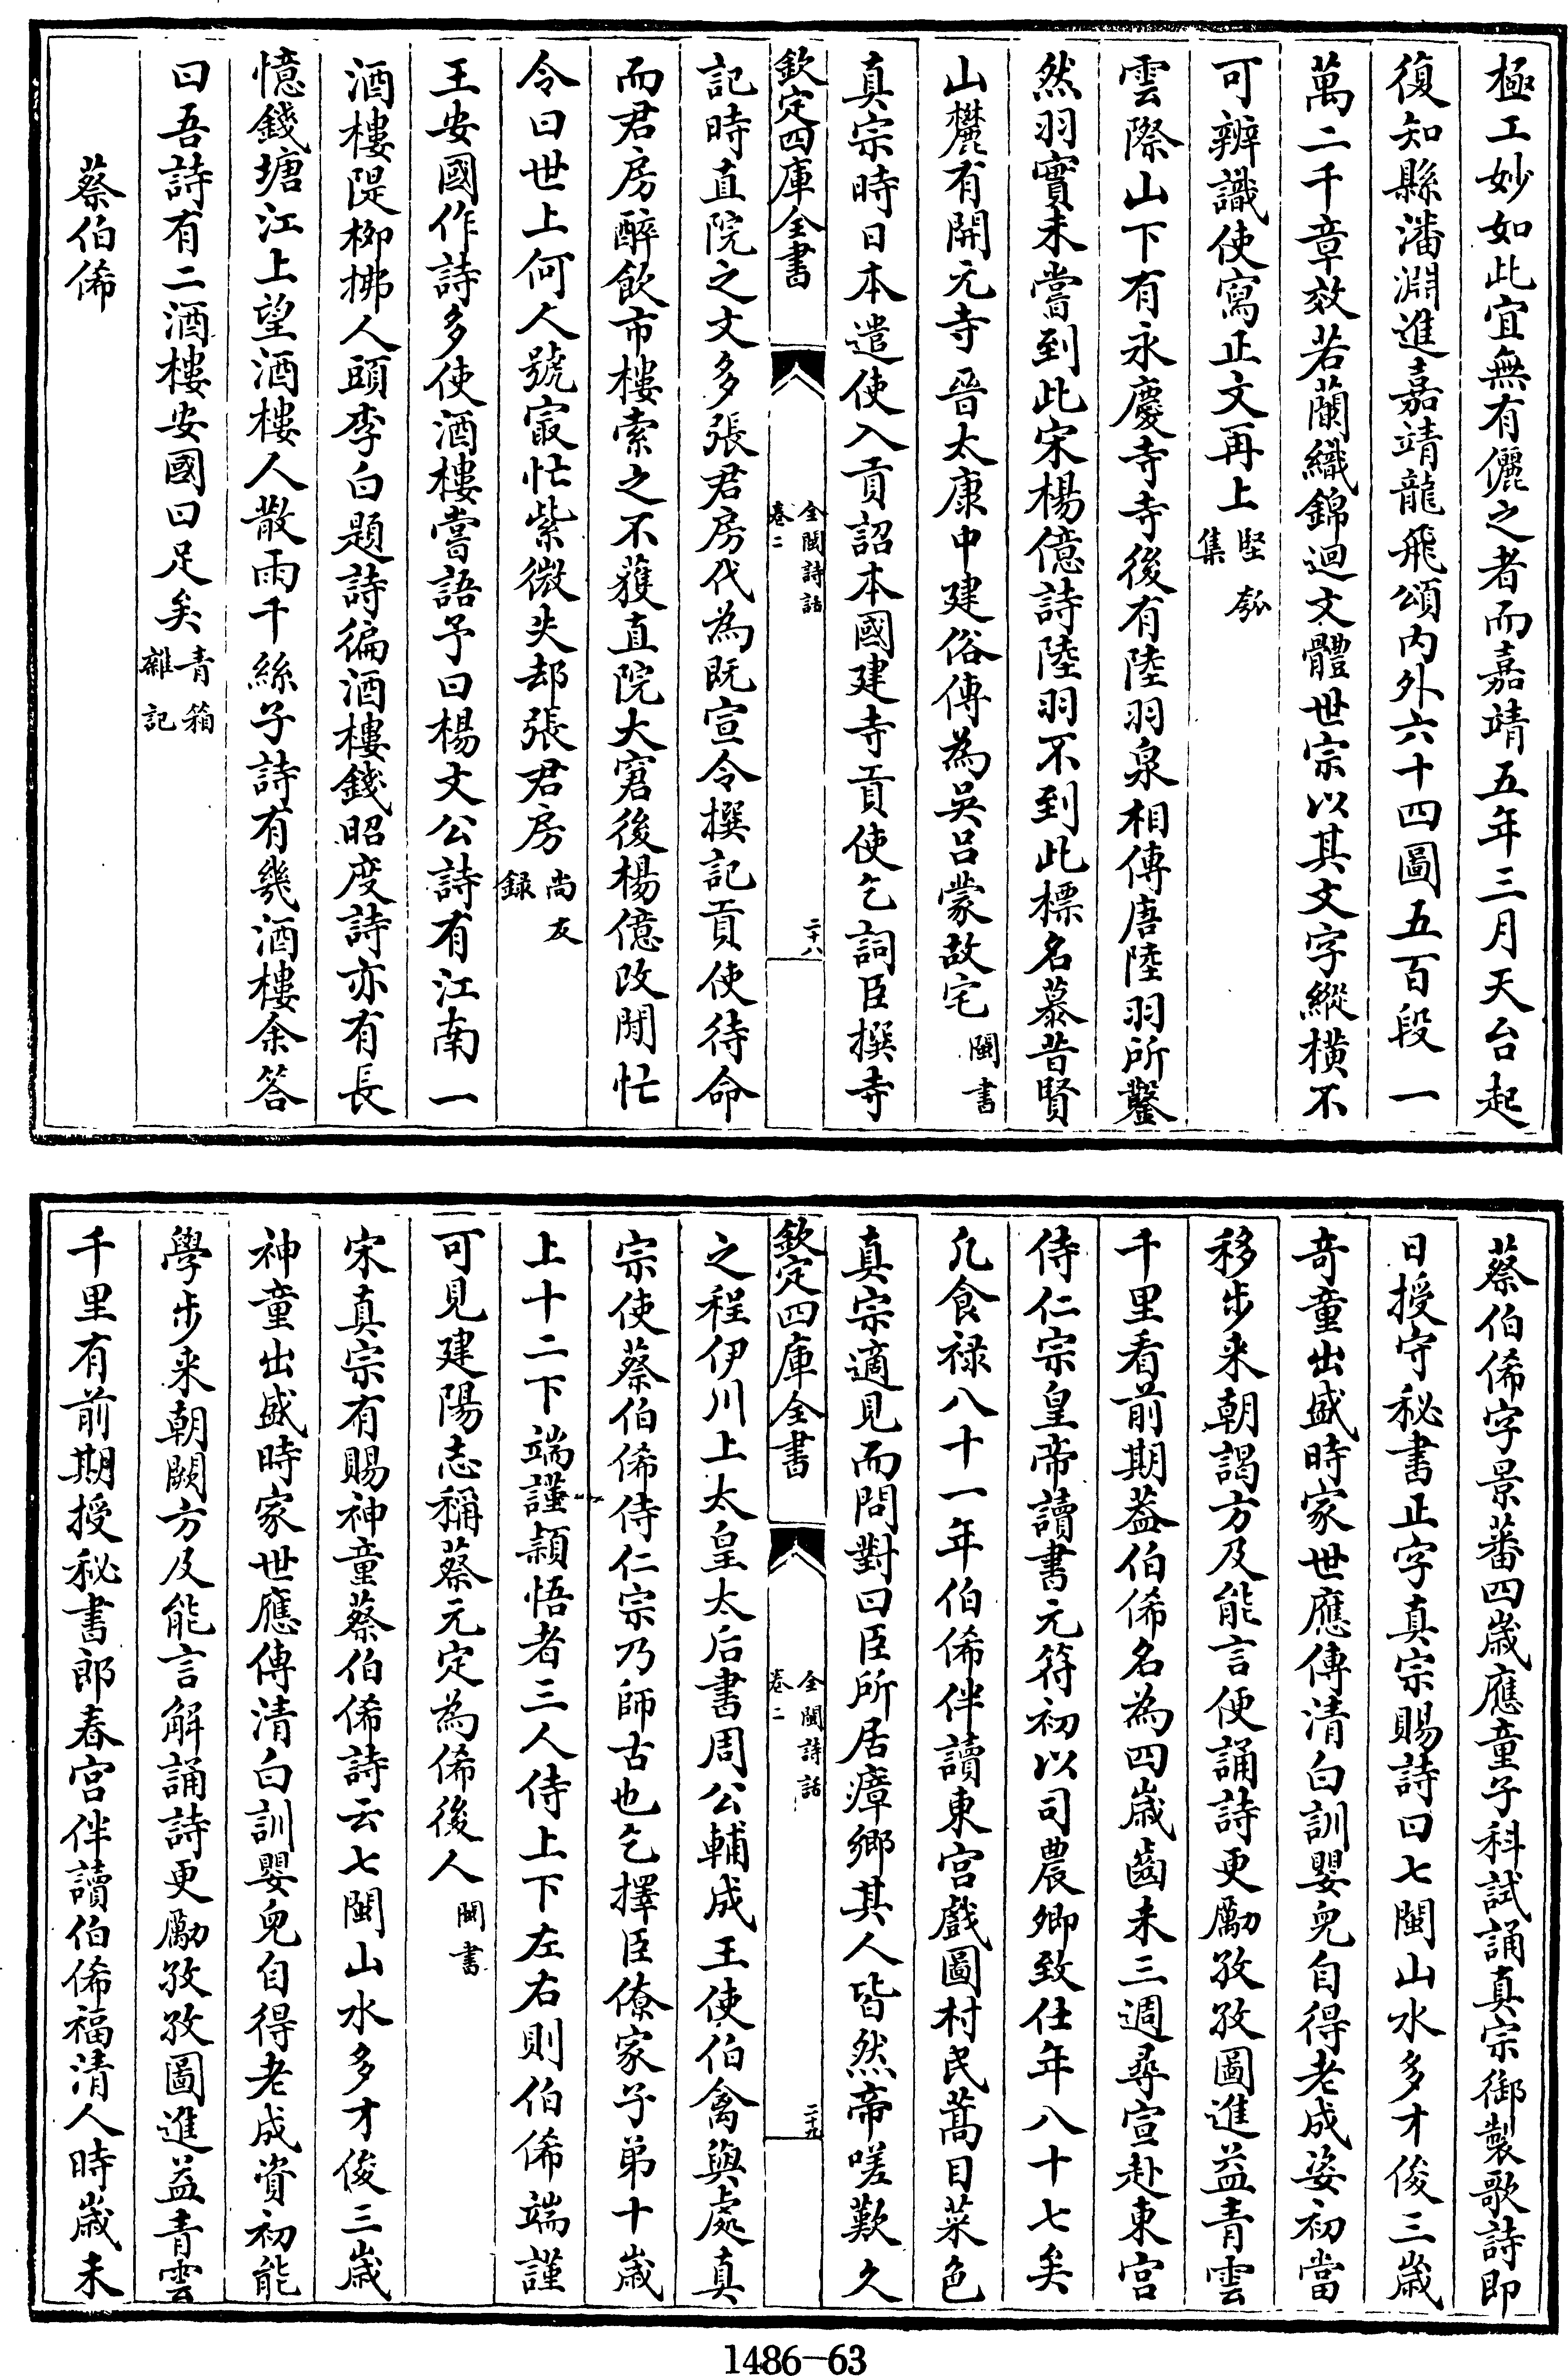 極工妙如此宜無有儷之者而嘉靖五年三月天台起
復知縣潘淵進嘉靖龍飛頌内外六十四圖五百段一
萬二千章效若蘭織錦迴文體世宗以其文字縱橫不
可辨識使寫正文再上堅瓠集
雲際山下有永慶寺寺後有陸羽泉相傳唐陸羽所鑿
然羽實未嘗到此宋楊億詩陸羽不到此標名慕昔賢
山麓有開元寺晉太康中建俗傳為吳呂蒙故宅閩書
真宗時日本遣使入貢詔本國建寺貢使乞詞臣撰寺
欽定四庫全書 全閩詩話卷二 二十八
記時直院之文多張君房代為既宣令撰記貢使待命
而君房醉飲市樓索之不獲直院大窘後楊億改閒忙
令曰世上何人號冣忙紫微失却張君房尚友録
王安國作詩多使酒樓嘗語予曰楊文公詩有江南一
酒樓隄柳拂人頭李白題詩徧酒樓錢昭度詩亦有長
憶錢塘江上望酒樓人散雨千絲子詩有幾酒樓余答
曰吾詩有二酒樓安國曰足矣青箱雜記
蔡伯俙
蔡伯俙字景蕃四歲應童子科試誦真宗御製歌詩即
日授守秘書正字真宗賜詩曰七閩山水多才俊三歲
竒童出盛時家世應傳清白訓嬰兒自得老成姿初當
移步来朝謁方及能言便誦詩更勵孜孜圖進益青雲
千里看前期葢伯俙名為四歲齒未三週尋宣赴東宫
侍仁宗皇帝讀書元符初以司農卿致仕年八十七矣
凡食禄八十一年伯俙伴讀東宫戲圖村民蒿目菜色
真宗適見而問對曰臣所居瘴鄉其人皆然帝嗟歎久
欽定四庫全書 全閩詩話卷二 二十九
之程伊川上太皇太后書周公輔成王使伯禽與處真
宗使蔡伯俙侍仁宗乃師古也乞擇臣僚家子弟十歲
上十二下端謹穎悟者三人侍上下左右則伯俙端謹
可見建陽志稱蔡元定為俙後人閩書
宋真宗有賜神童蔡伯俙詩云七閩山水多才俊三歲
神童出盛時家世應傳清白訓嬰兒自得老成資初能
學步来朝闕方及能言解誦詩更勵孜孜圖進益青雲
千里有前期授秘書郎春宫伴讀伯俙福清人時歲未
1486-63